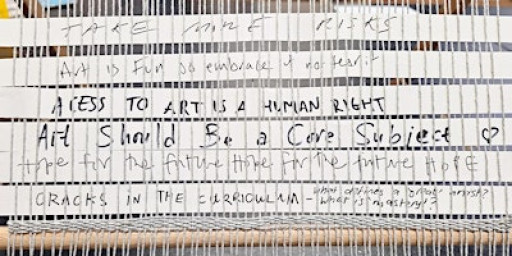 TAKE MORE RISKS
Art is Fun so embrace it not fear it
ACESS TO ART IS A HUMAN RIGHT
Art Should Be a Core Subject ♡
Hope for the future Hope for the future HOPE
CRACKS IN THE CURRICULUM - what defines a great artist?
what is mastery?